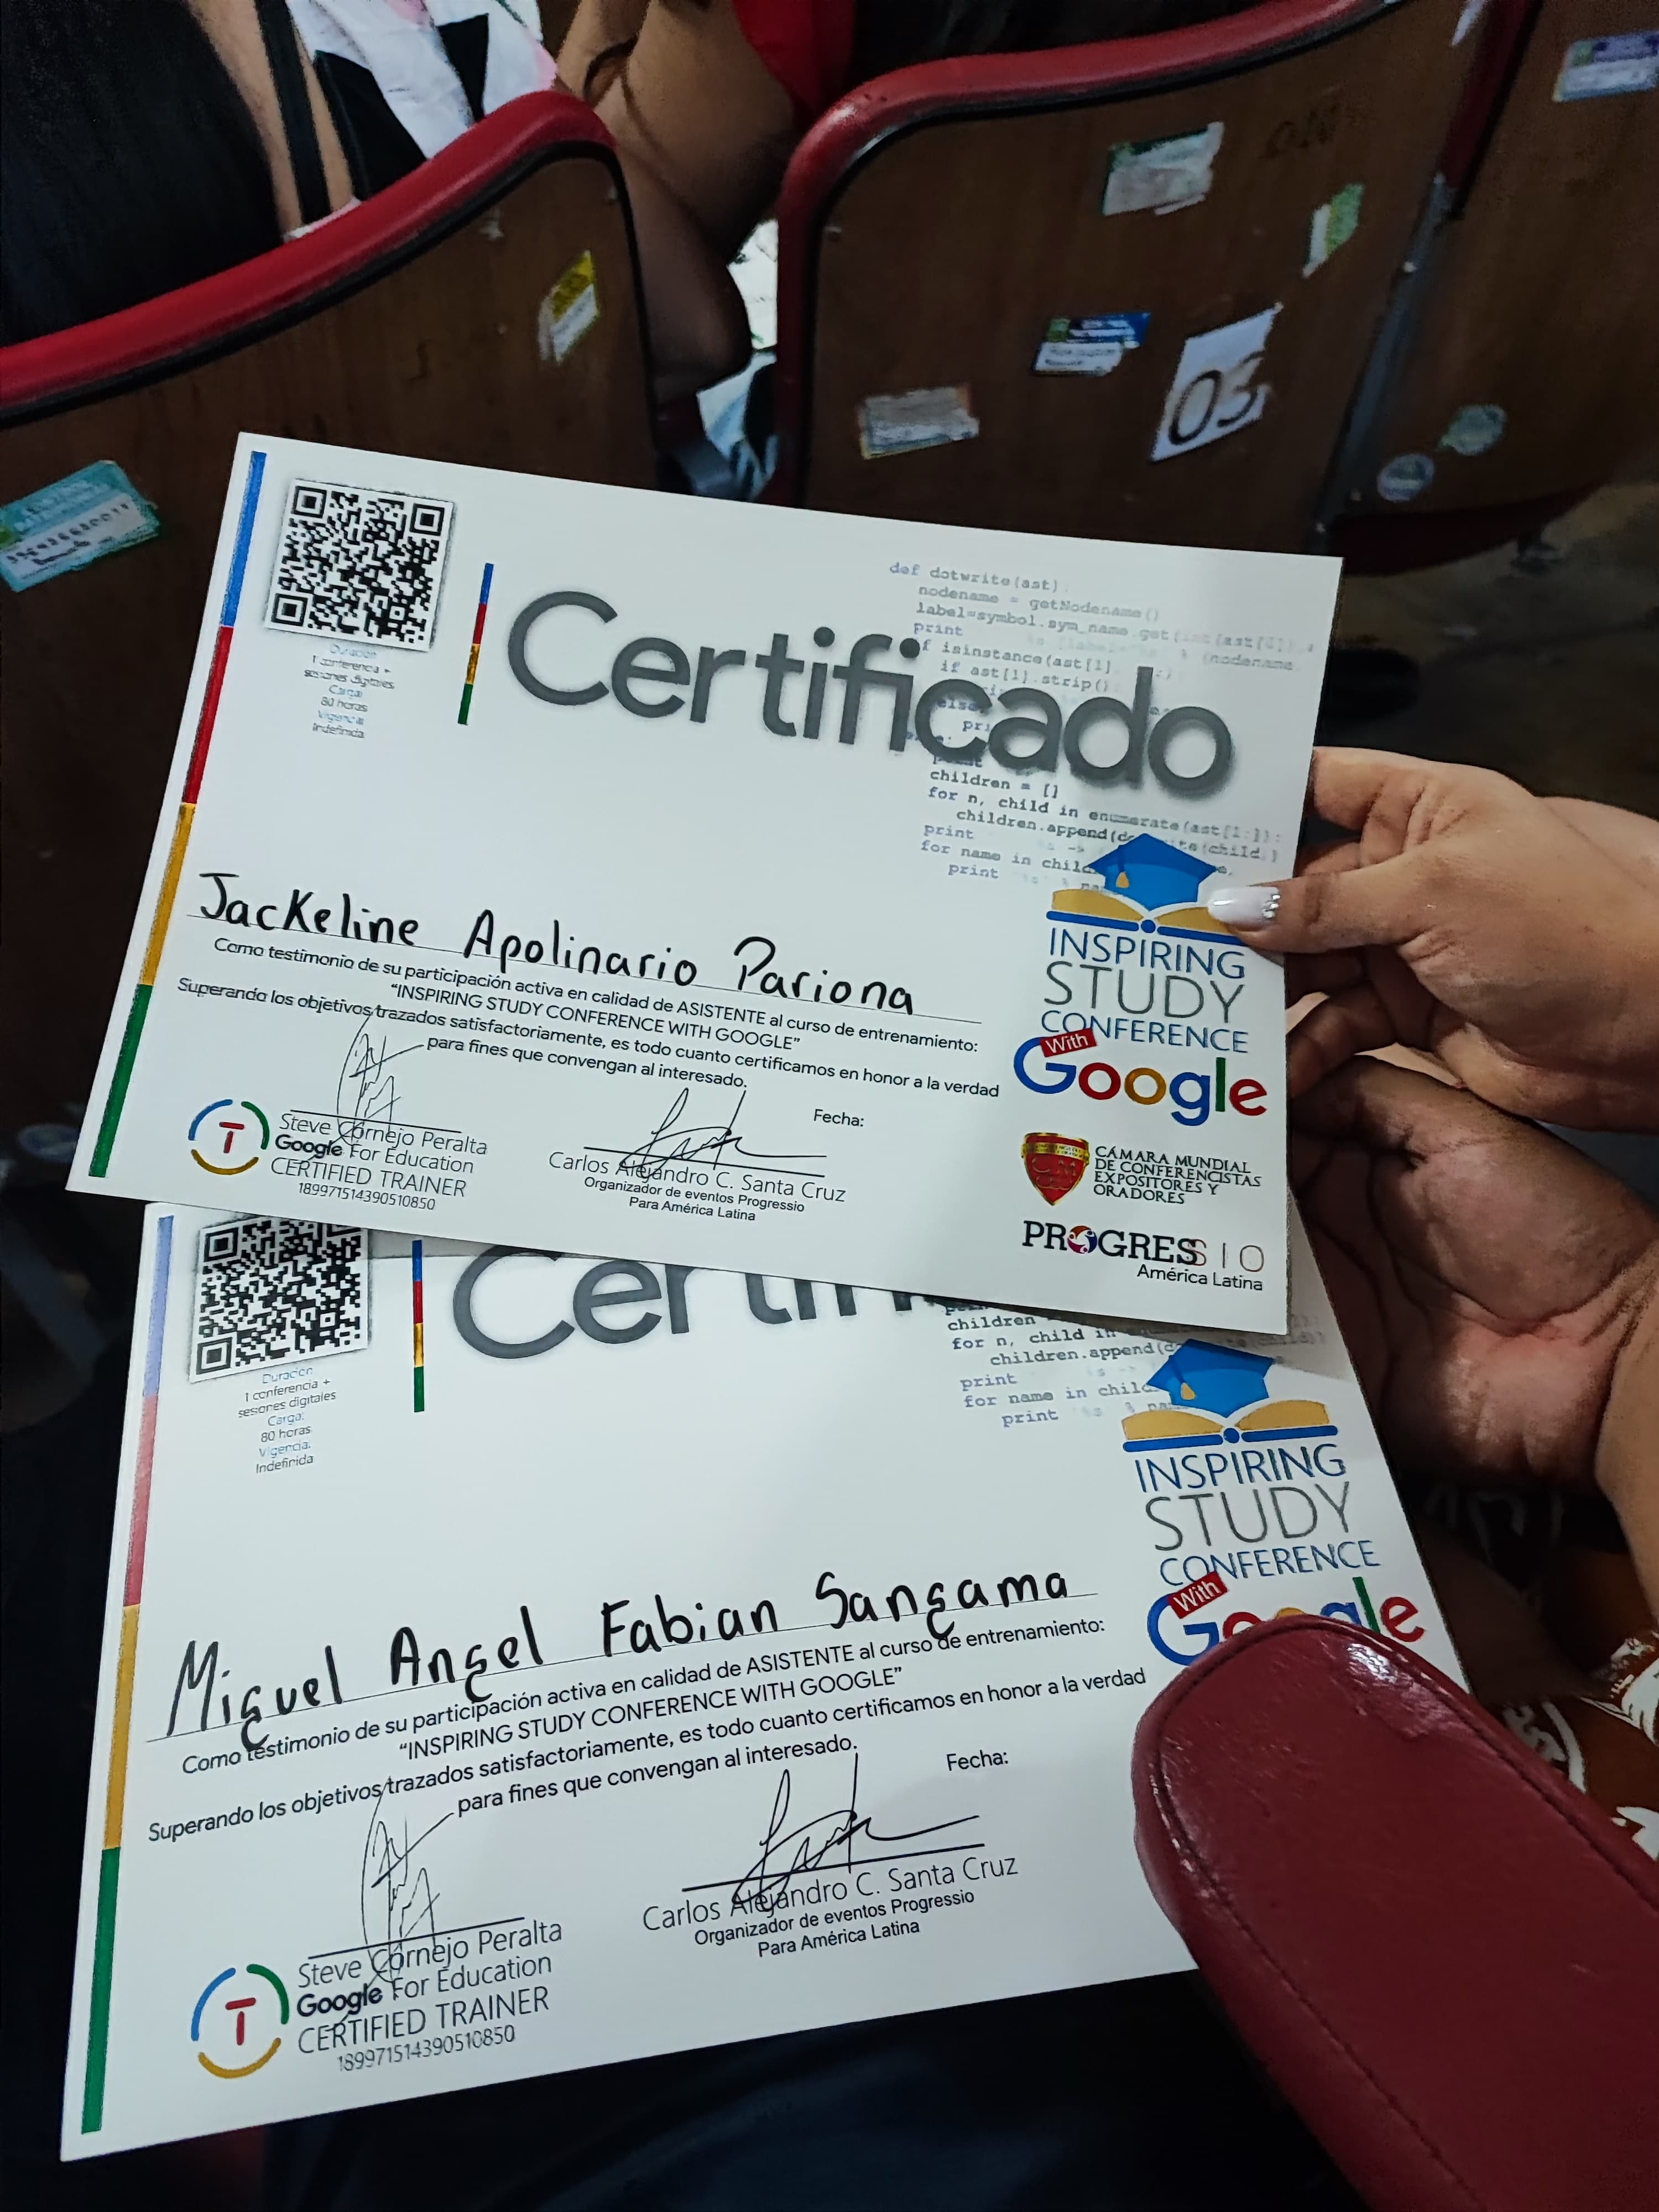 03
Duración
1 conferencia +
sesiones digitales
Carga:
80 horas
Vigencia:
Indefinida
Certificado
def dotwrite(ast)
nodename = getNodename()
label=symbol.sym_name.get(int(ast[0]),
print
isinstance(ast[1]
if ast[1].strip()
else
children = []
for n, child in enumerate(ast[1:]):
children.append(
print
for name in
print
Jackeline Apolinario Pariona
Como testimonio de su participación activa en calidad de ASISTENTE al curso de entrenamiento:
"INSPIRING STUDY CONFERENCE WITH GOOGLE"
Superando los objetivos trazados satisfactoriamente, es todo cuanto certificamos en honor a la verdad
para fines que convengan al interesado.
Fecha:
T
Steve Cornejo Peralta
Google For Education
CERTIFIED TRAINER
18997151439051085​0
Carlos Alejandro C. Santa Cruz
Organizador de eventos Progressio
Para América Latina
INSPIRING
STUDY
CONFERENCE
With
Google
CÁMARA MUNDIAL
DE CONFERENCISTAS
EXPOSITORES Y
ORADORES
PROGRESSIO
América Latina
Duración
1 conferencia +
sesiones digitales
Carga:
80 horas
Vigencia:
Indefinida
children
for n, child in
children.append(
print
for name in
print
Miguel Angel Fabian Sangama
Como testimonio de su participación activa en calidad de ASISTENTE al curso de entrenamiento:
"INSPIRING STUDY CONFERENCE WITH GOOGLE"
Superando los objetivos trazados satisfactoriamente, es todo cuanto certificamos en honor a la verdad
para fines que convengan al interesado.
Fecha:
T
Steve Cornejo Peralta
Google For Education
CERTIFIED TRAINER
189971514390510850
Carlos Alejandro C. Santa Cruz
Organizador de eventos Progressio
Para América Latina
INSPIRING
STUDY
CONFERENCE
With
Google